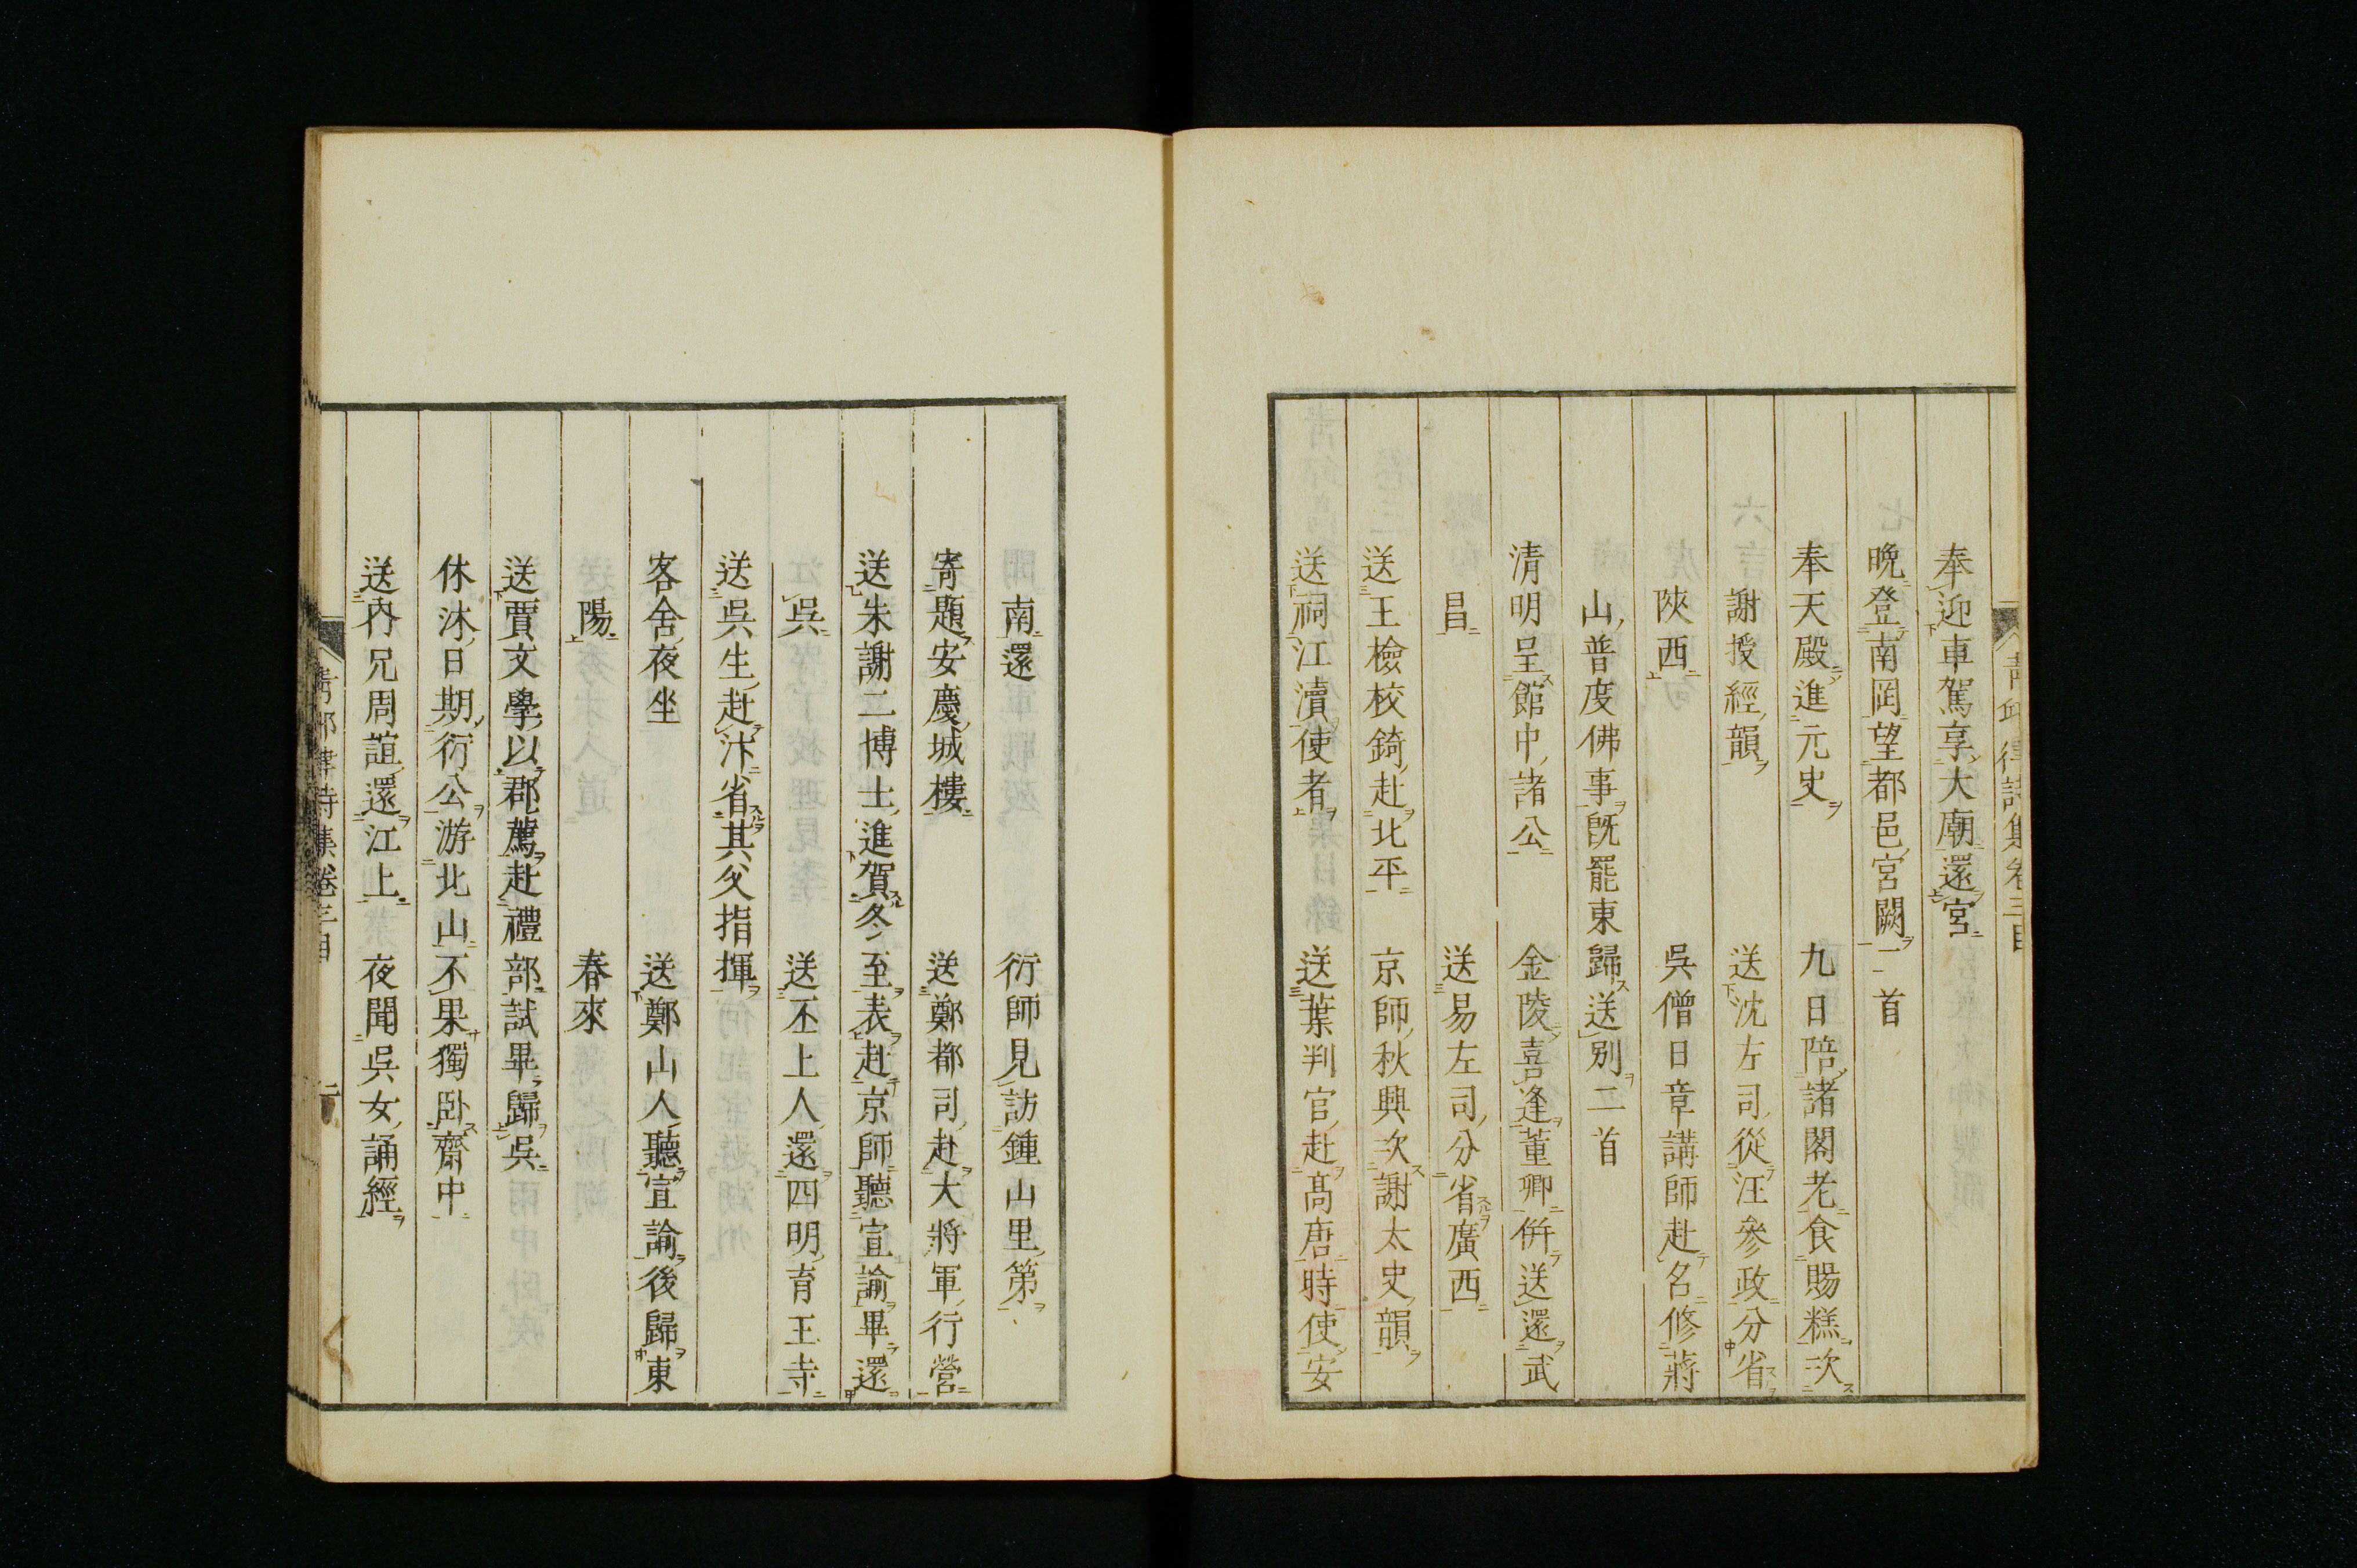 奉迎車駕享大廟還宮
晩登南岡望都邑宮闕二首
奉天殿進元史　九日陪諸閣老食賜糕次
謝授經韻　送沈左司從汪參政分省
陝西　吳僧日章講師赴名修蔣
山普度佛事旣罷東歸送別二首
清明呈館中諸公　金陵喜逢董卿併送還武
昌　送易左司分省廣西
送王檢校錡赴北平　京師秋興次謝太史韻
送祠江瀆使者　送葉判官赴高唐時使安
南還　衍師見訪鍾山里第
寄題安慶城樓　送鄭都司赴大將軍行營
送朱謝二博士進賀冬至表赴京師聽宣諭畢還
吳　送丕上人還四明育王寺
送吳生赴汴省其父指揮
客舍夜坐　送鄭山人聽宣諭後歸東
陽　春來
送賈文學以郡薦赴禮部試畢歸吳
休沐日期衍公游北山不果獨臥齋中
送內兄周誼還江上　夜聞吳女誦經
青邱律詩集卷三目